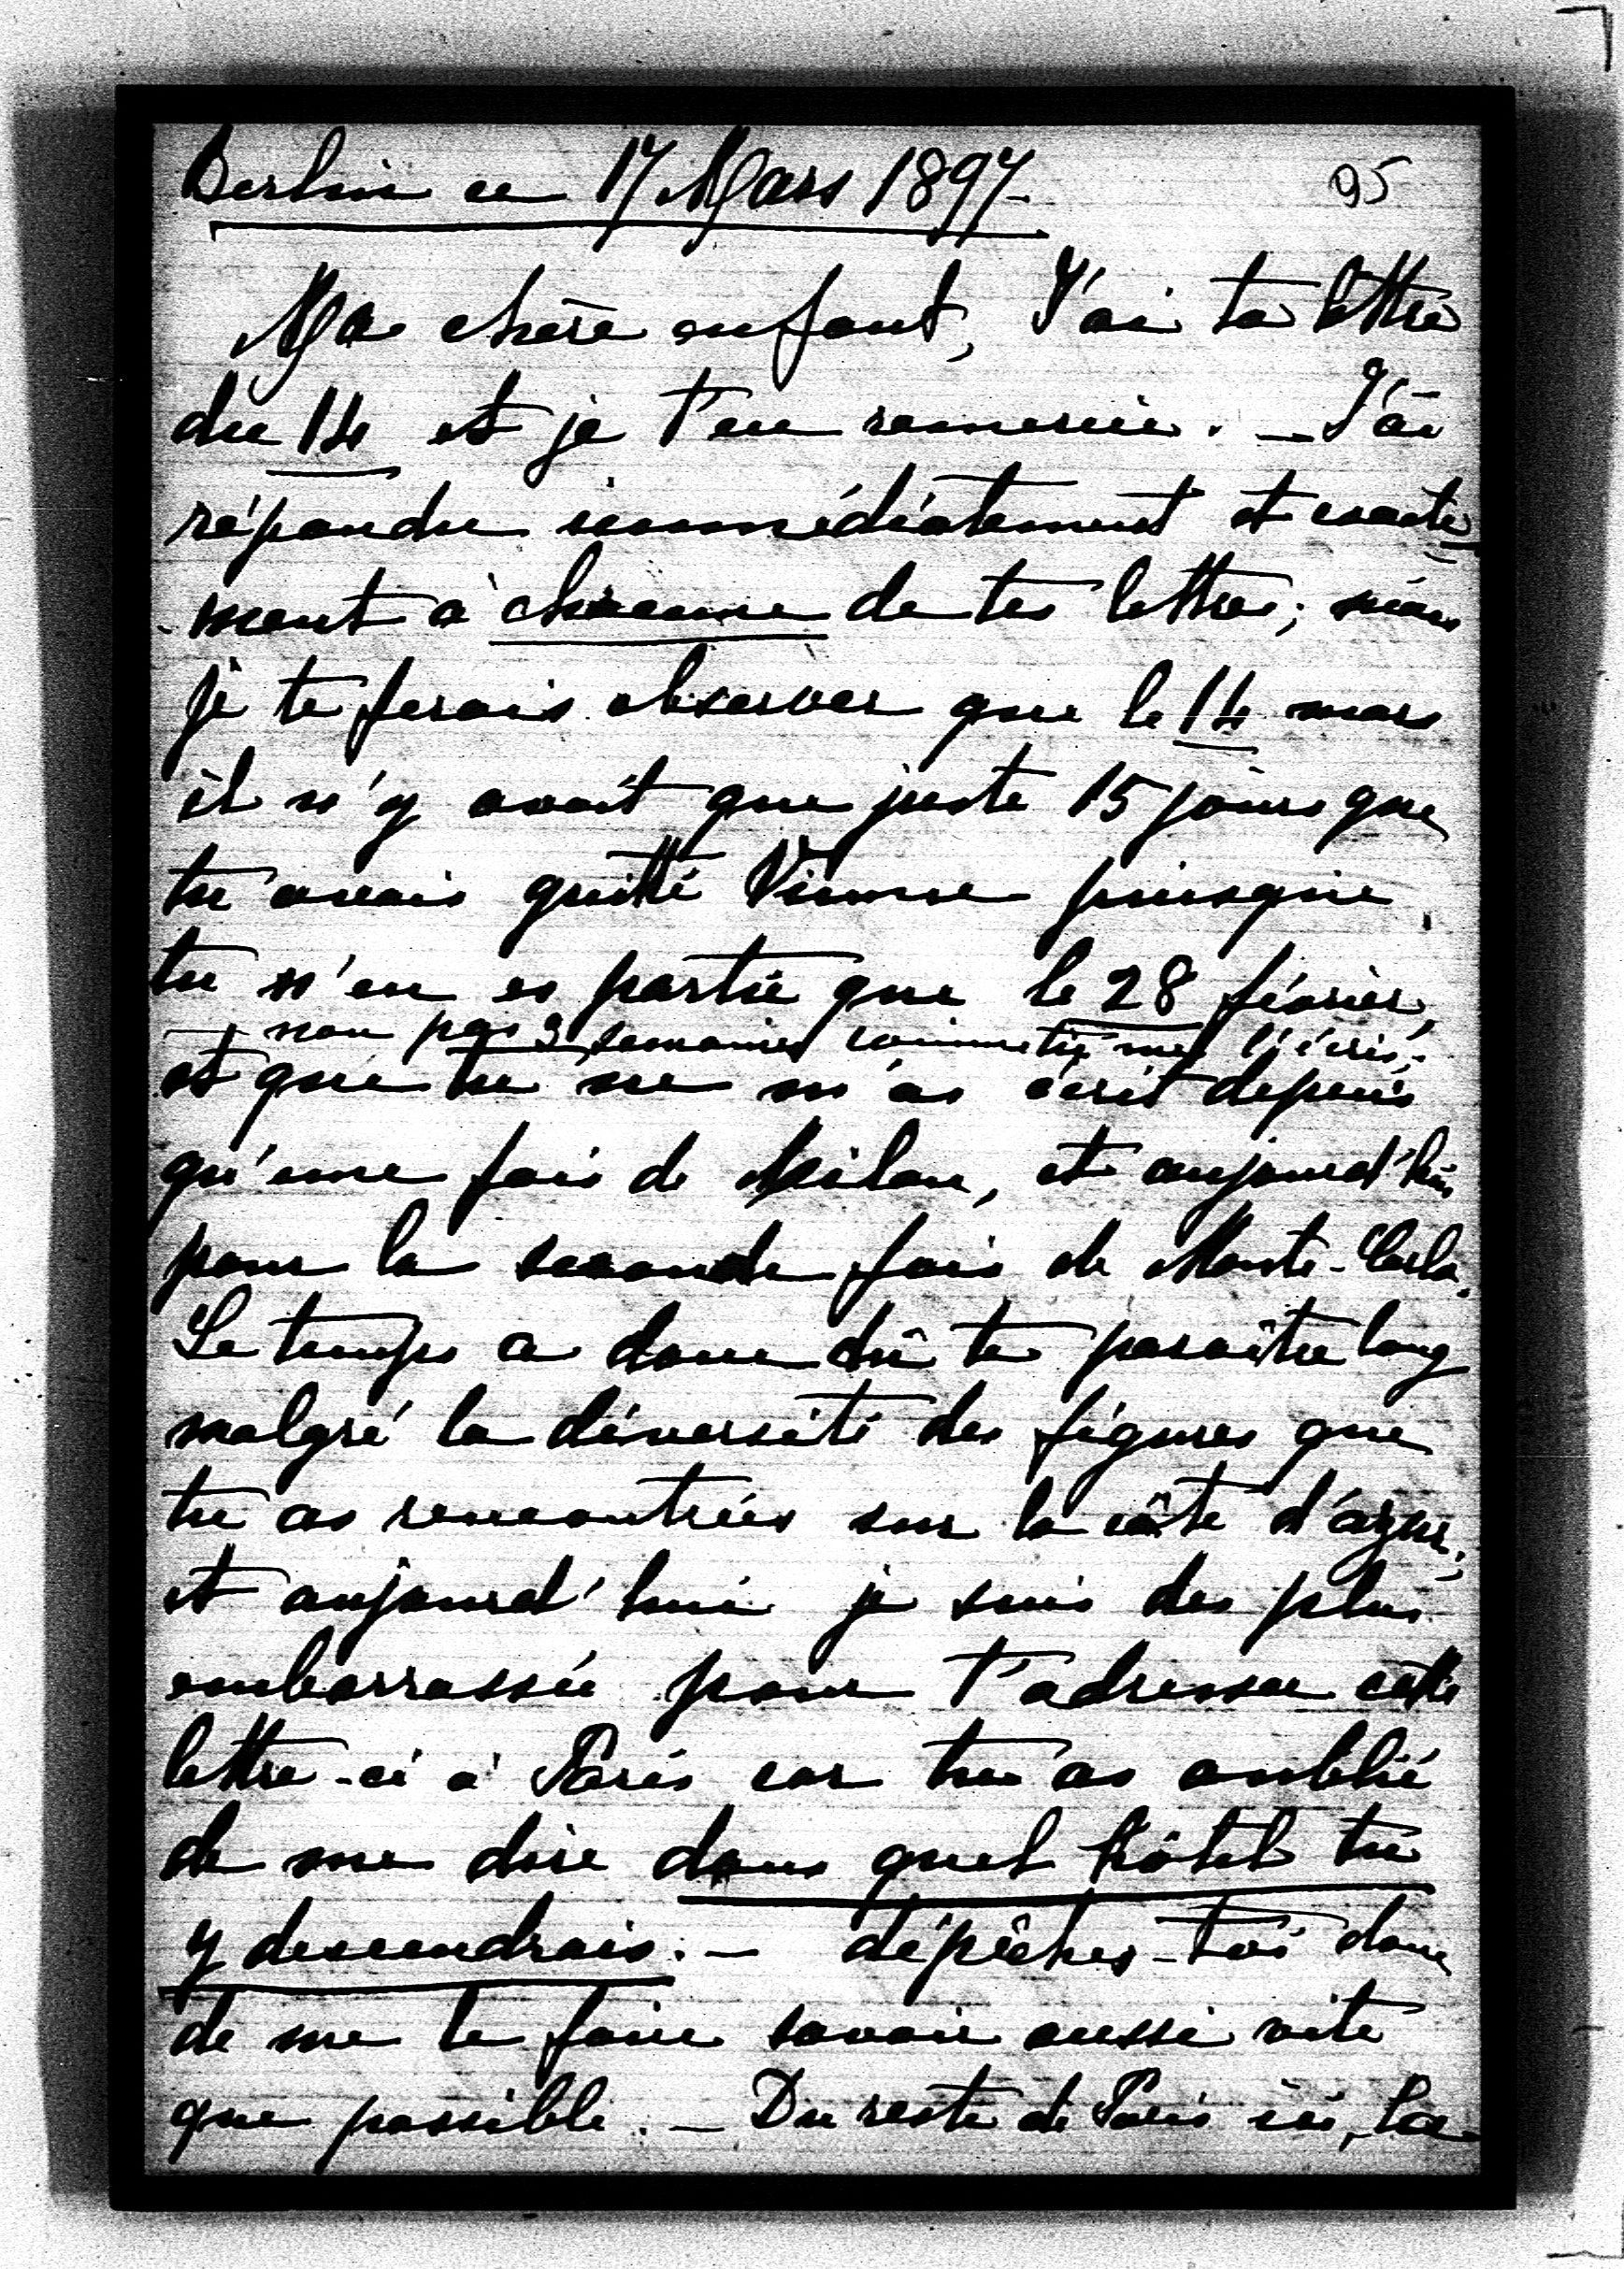 Berlin ce 17 Mars 1897.
95
Ma chère enfant, J'ai ta lettre
du 14 et je t'en remercie. — J'ai
répondu immédiatement et exacte
ment à chacune de tes lettres; mais
je te ferais observer que le 14 mars
il n'y avait que juste 15 jours que
tu avais quitté Vienne puisque
tu n'en es partie que le 28 février,
non pas 3 semaines comme tu me l'écris.
et que tu ne m'as écrit depuis
qu'une fois de Milan, et aujourd'hui
pour la seconde fois de Monte-Carlo.
Le temps a donc dû te paraître long
malgré la diversité des figures que
tu as rencontrées sur la côte d'azur;
et aujourd'hui je suis des plus
embarrassée pour t'adresser cette
lettre-ci à Paris car tu as oublié
de me dire dans quel hôtel tu
y descendrais. — dépêches-toi donc
de me le faire savoir aussi vite
que possible. — Du reste de Paris ici, la